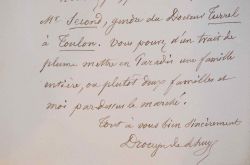 Mr. Second, gendre du Docteur Turrel
à Toulon. Vous pouvez d'un trait de
plume mettre en Paradis une famille
entière, ou plutôt deux familles et
moi par dessus le marché.
Tout à vous bien sincèrement
Drouyn de Lhuys